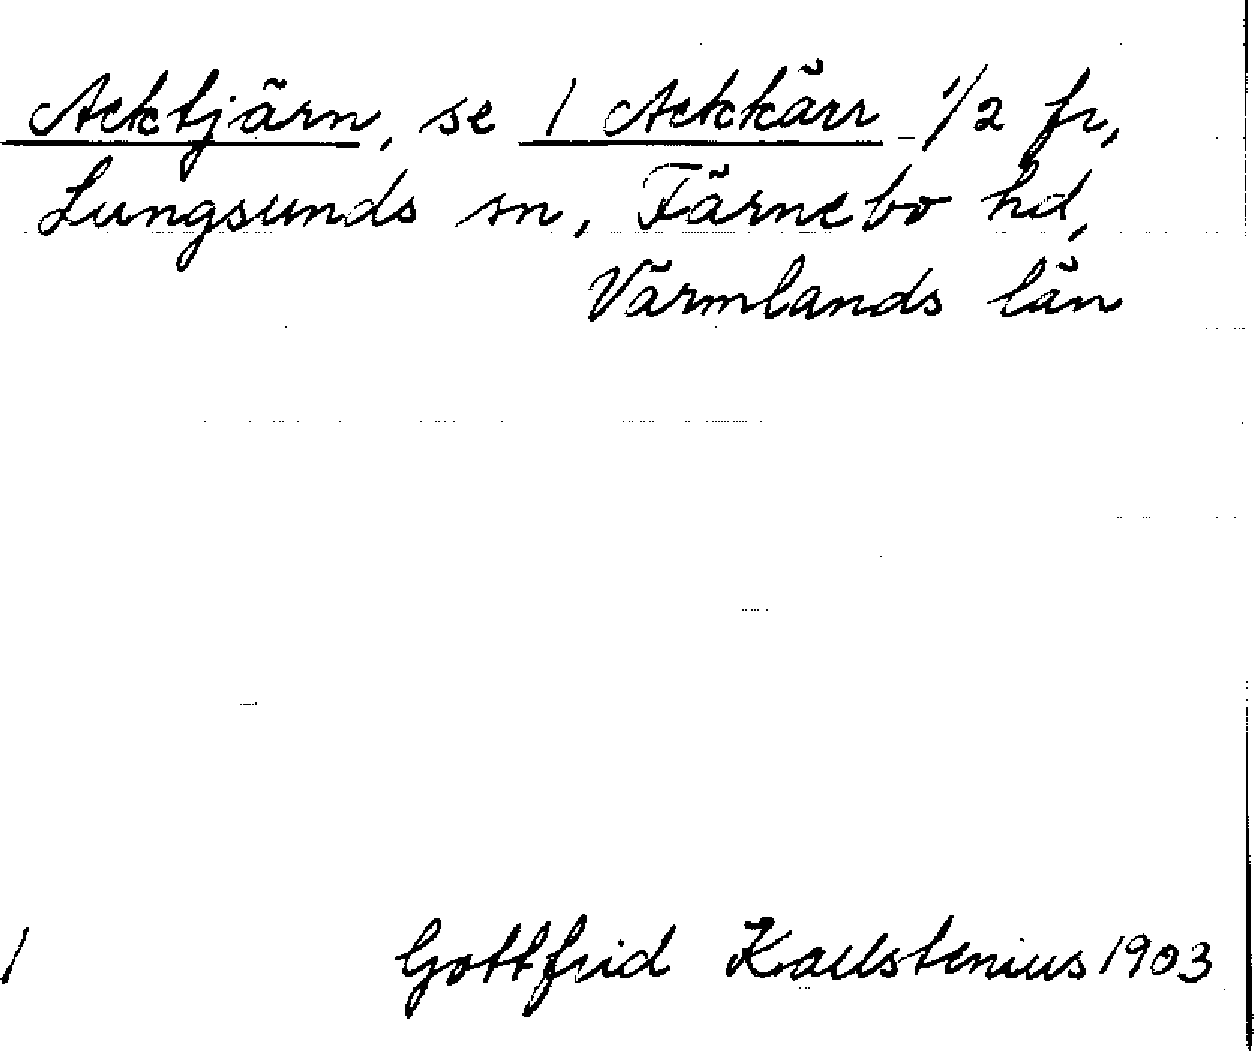 Acktjärn, se 1 Ackkärr 1/2 fr,
Lungsunds sn, Färnebo hd,
Värmlands län
1 Gottfrid Kallstenius 1903